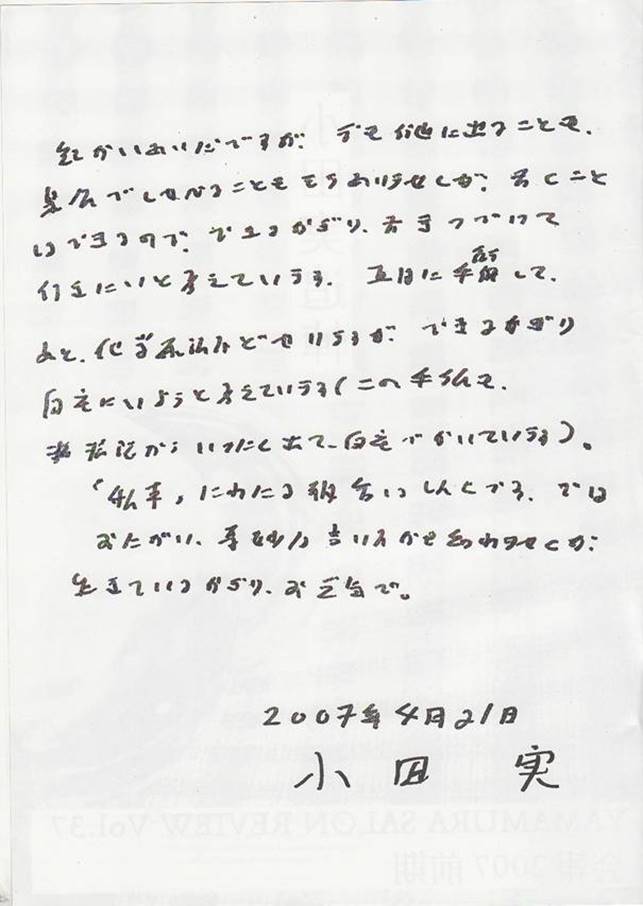 短かいあいだですが、デモ行進に出ることも、
集会でしゃべることももうありませんが、書くこと
はできるので、できるかぎり、書きつづけて
行きたいと考えています。五月に手術して、
あと、化学療法などやりますが、できるかぎり
自宅にいようと考えています(この手紙も、
病院からいったん出て、自宅でかいています)。
「私事」にわたる報告はしんどです。では
おたがい、奇妙な言い方かも知れませんが、
生きているかぎり、お元気で。
2007年4月21日
小田 実
YAMAMURA SALON REVIEW Vol.37
会報 2007 前期